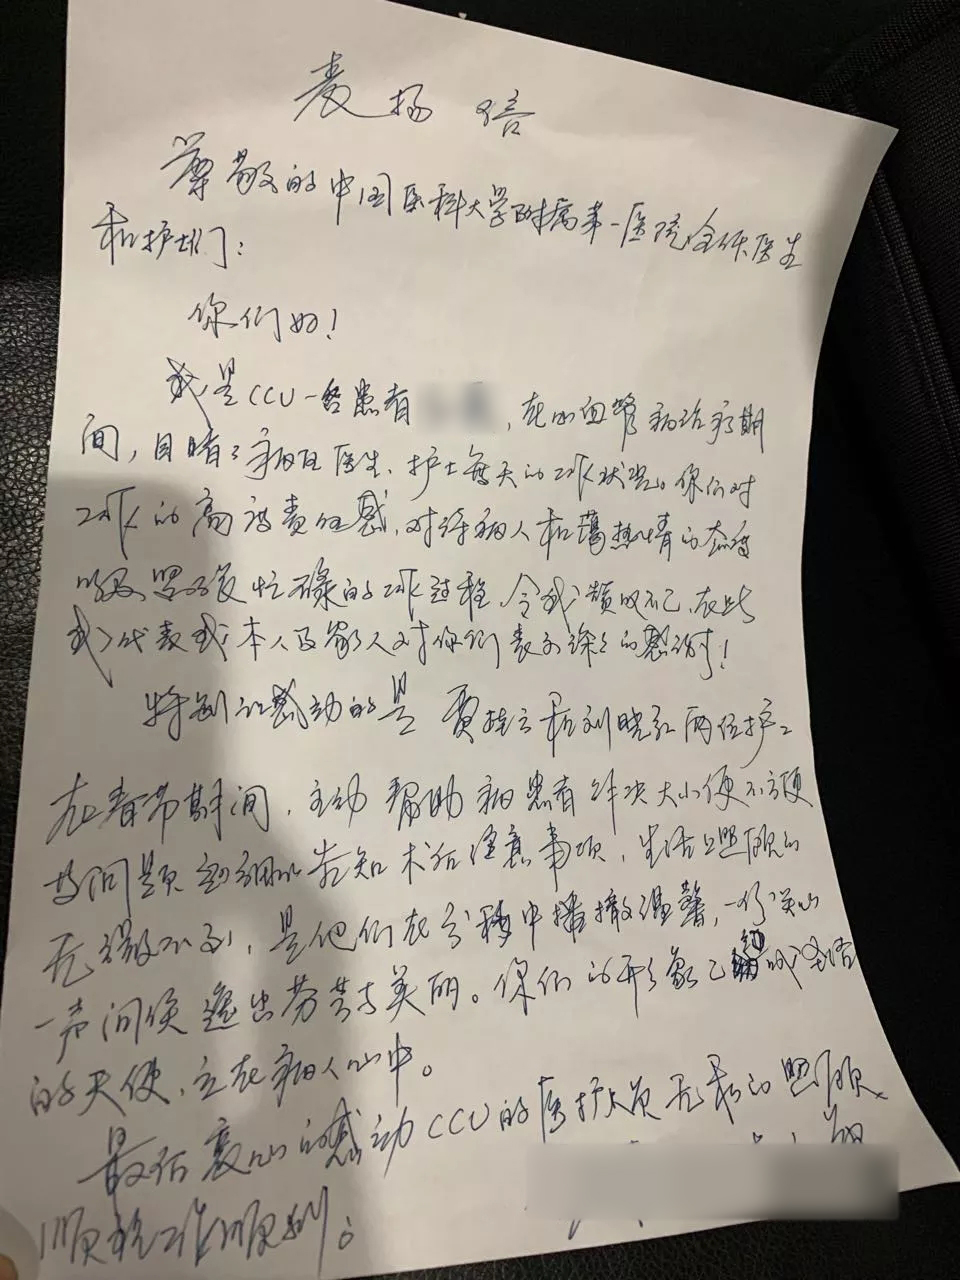 表扬信
尊敬的中国医科大学附属第一医院全体医生
和护士们：
你们好！
我是CCU一名患者，在心血管病治疗期
间，目睹了病区医生、护士每天的工作状况。你们对
工作的高度责任感，对待病人和蔼热情的态度
以及紧张忙碌的工作过程，令我赞叹不已，在此
我代表我本人及家人对你们表示深深的感谢！
特别让感动的是 贾 和刘晓红两位护士
在春节期间，主动帮助病患者解决大小便不方便
等问题 细心告知术后注意事项，生活上照顾的
无微不到，是他们在 中播撒温馨，一 关心
一声问候 出芬芳与美丽。你们的形象已 成圣洁
的天使，立在病人心中。
最后衷心的感动CCU的医护人员无私的照顾，
顺祝工作顺利；